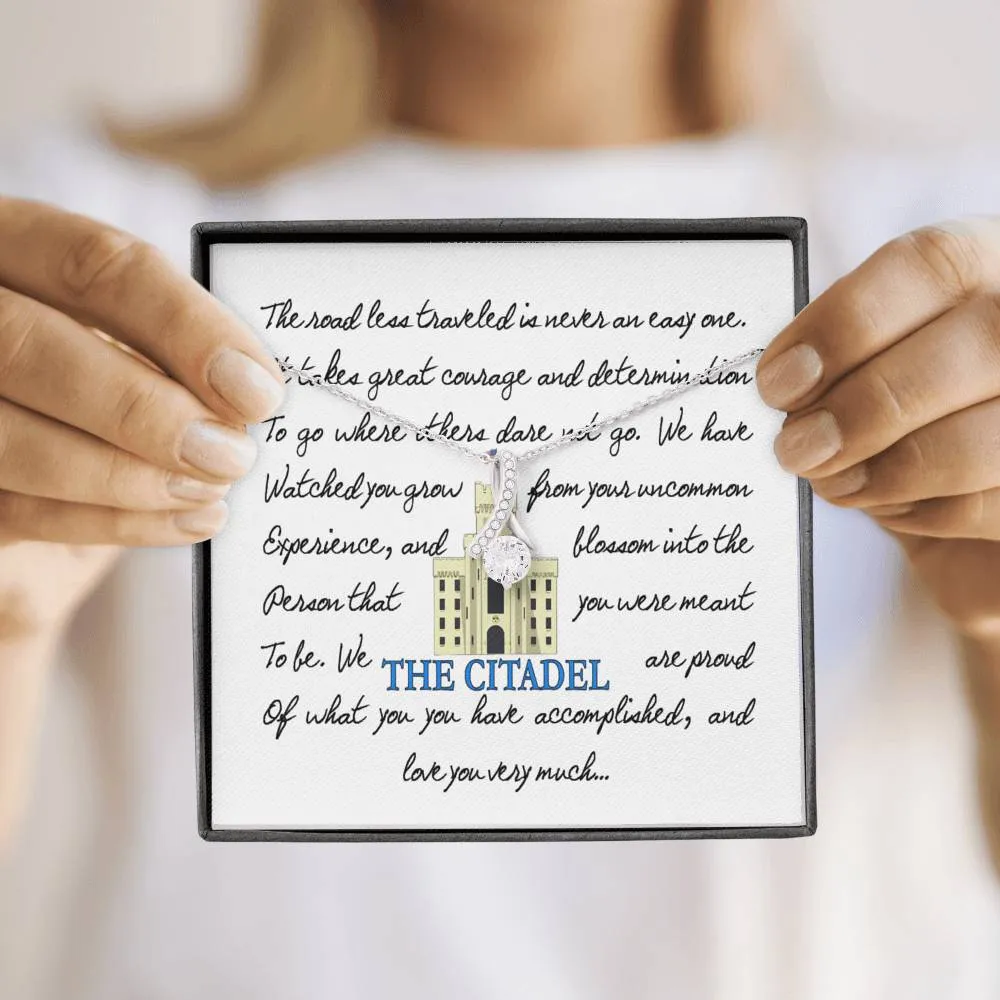 The road less traveled is never an easy one.
It takes great courage and determination
To go where others dare not go. We have
Watched you grow from your uncommon
Experience, and blossom into the
Person that you were meant
To be. We are proud
THE CITADEL
Of what you you have accomplished, and
love you very much...